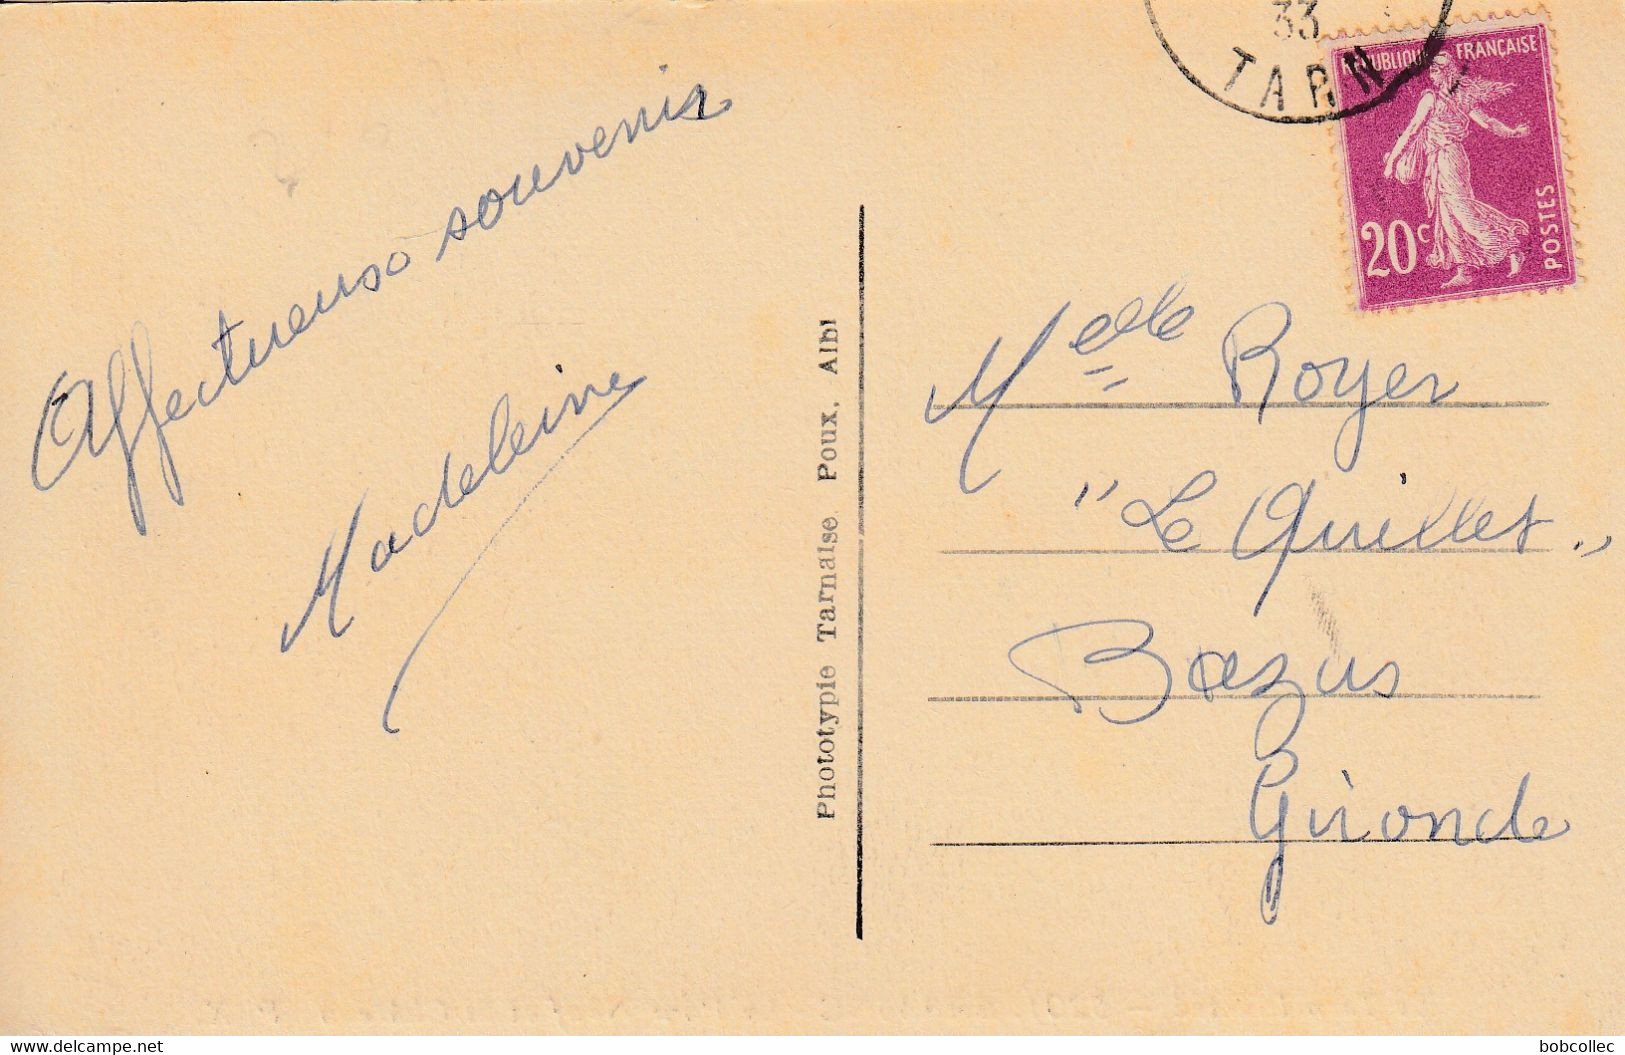 33
TARN
REPUBLIQUE FRANÇAISE
20c
POSTES
Affectueuse souvenir
Madeleine
Phototypie Tarnaise Poux, Albi
Melle Royer
"Le Quillet"
Bazas
Gironde
www.delcampe.net
bobcollec